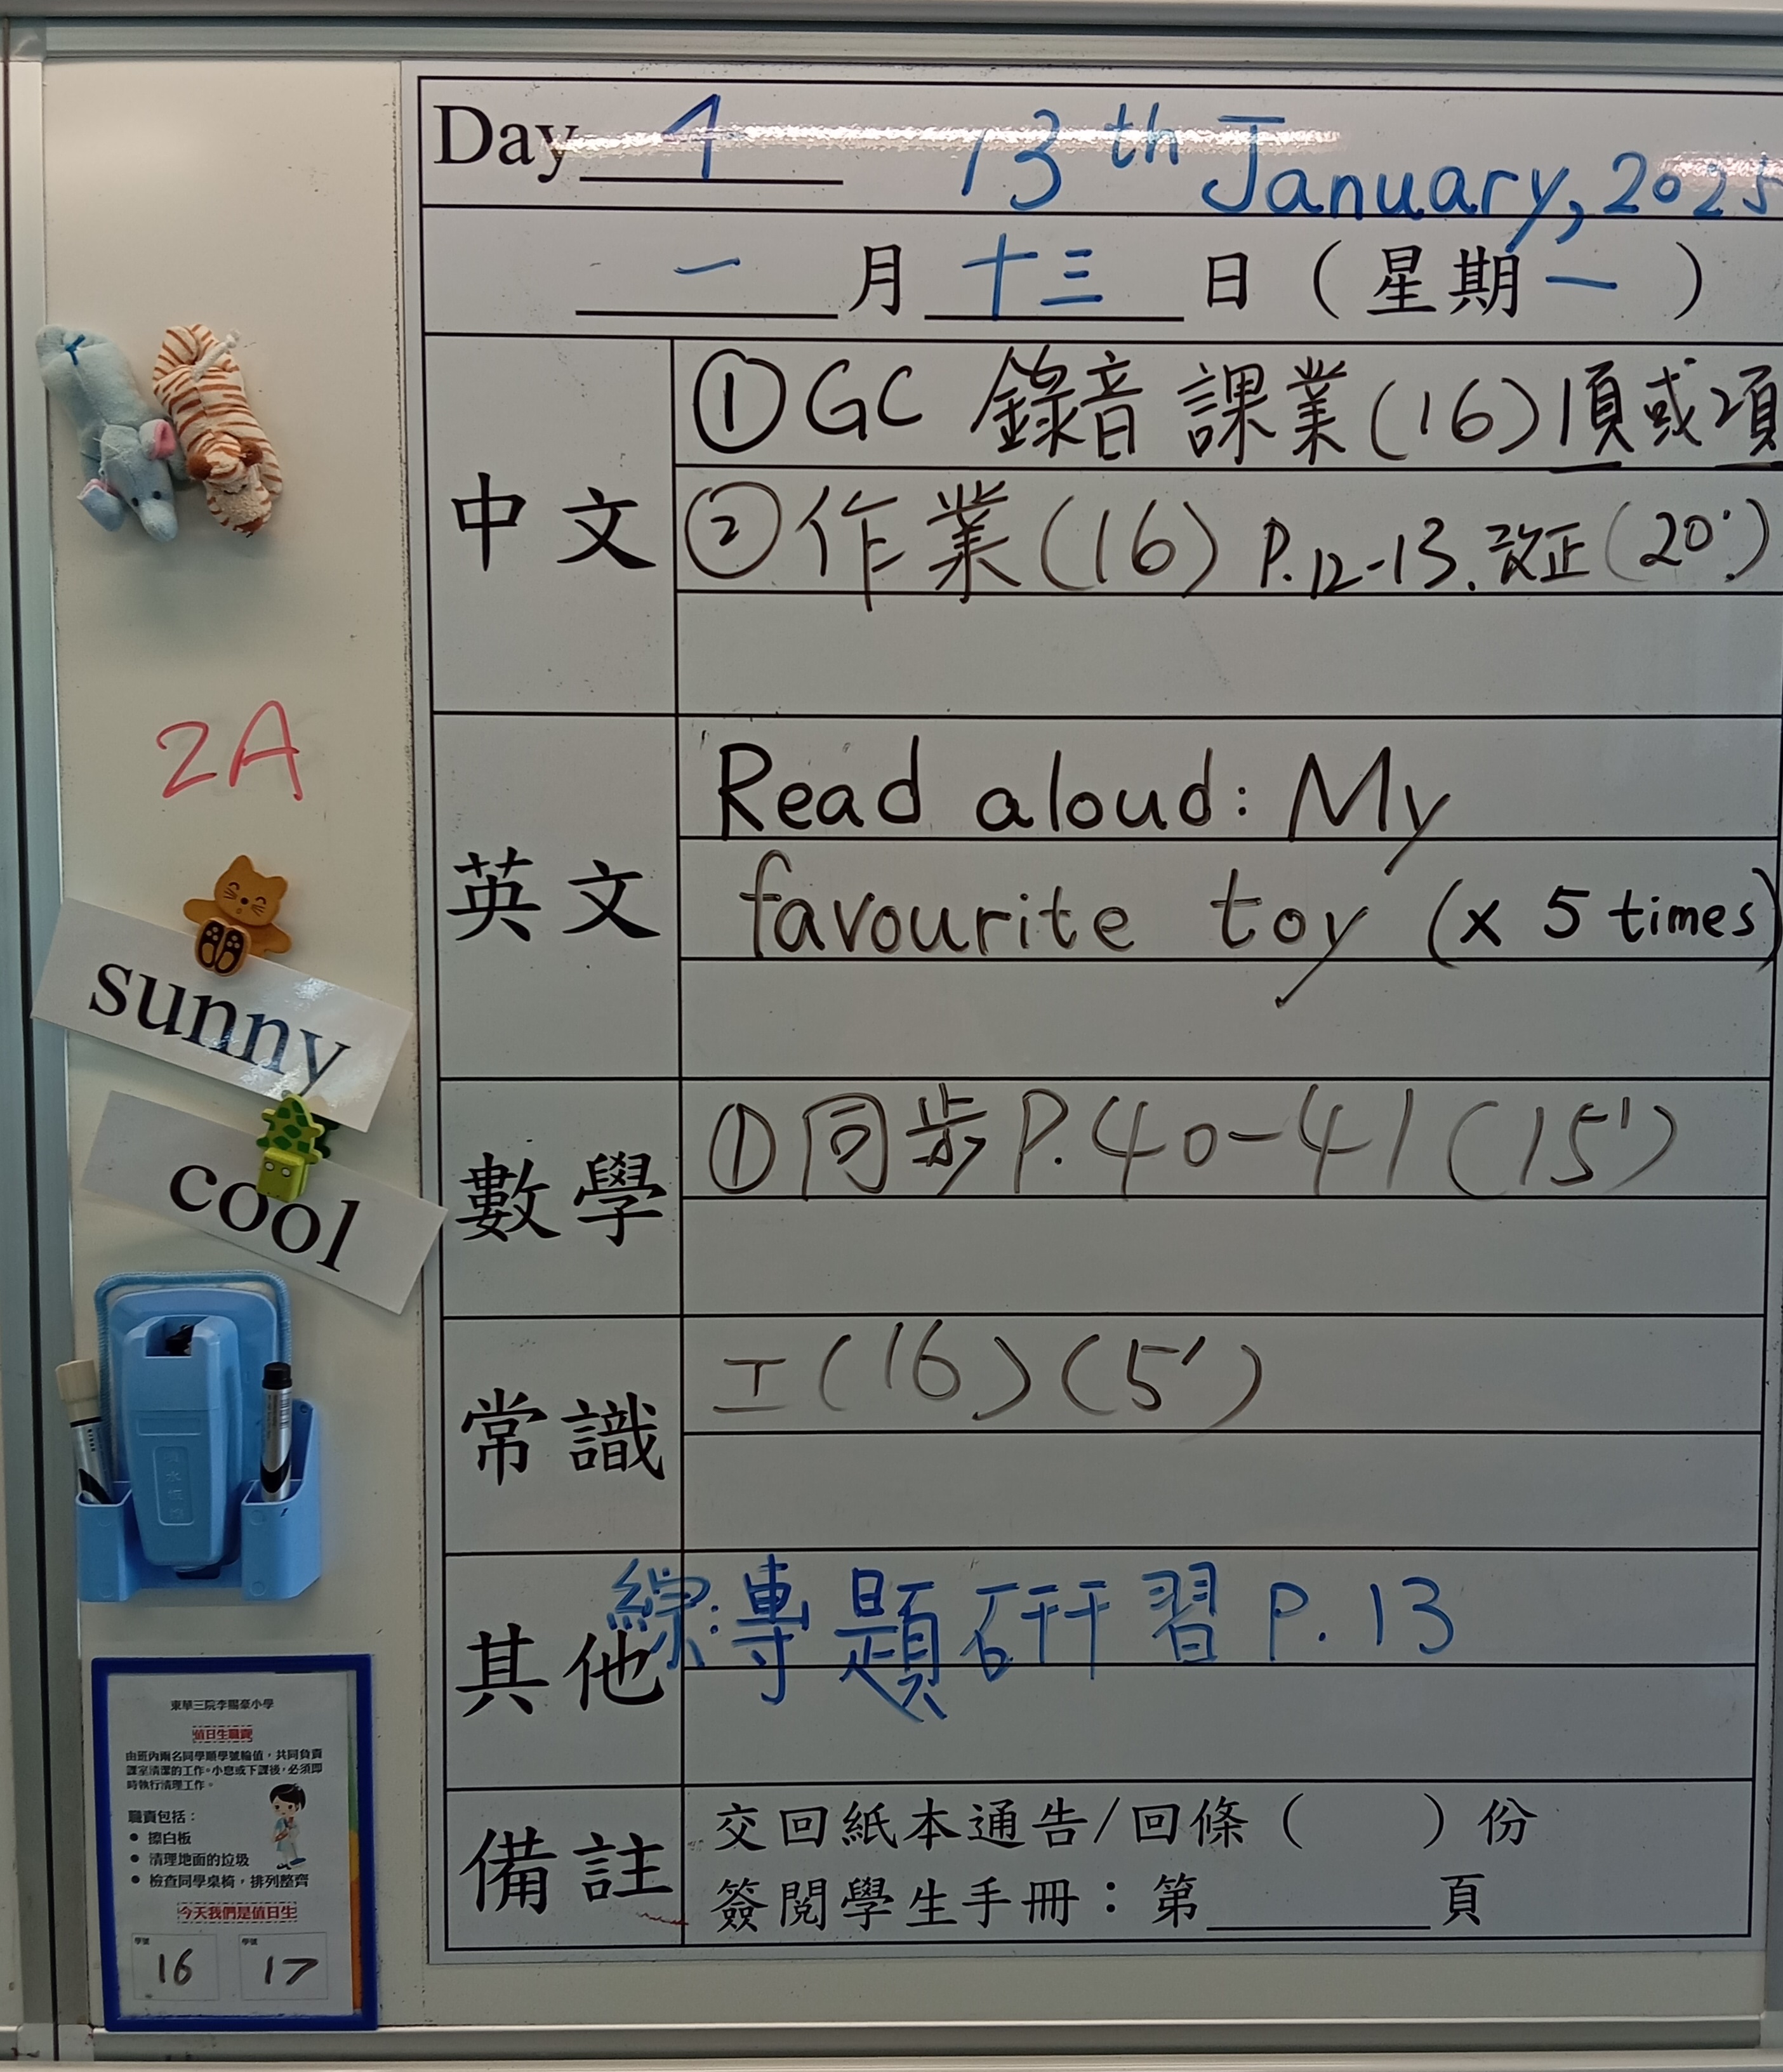 Day 1 13th January, 2025
一 月 十三 日 ( 星期 一 )
中文
①GC 錄音 課業(16)1項或2項
②作業(16) P.12-13.改正(20')
2A
英文
Read aloud: My
favourite toy (x 5 times)
sunny
cool
數學
①同步P.40-41(15')
常識
工(16)(5')
其他
綜:專題研習 P.13
備註
交回紙本通告/回條 ( ) 份
簽閱學生手冊：第 頁
東華三院李賜豪小學
值日生職責
由班內兩名同學順學號輪值，共同負責
課室清潔的工作。小息或下課後，必須即
時執行清理工作。
職責包括：
● 擦白板
● 清理地面的垃圾
● 檢查同學桌椅，排列整齊
今天我們是值日生
學號 學號
16 17